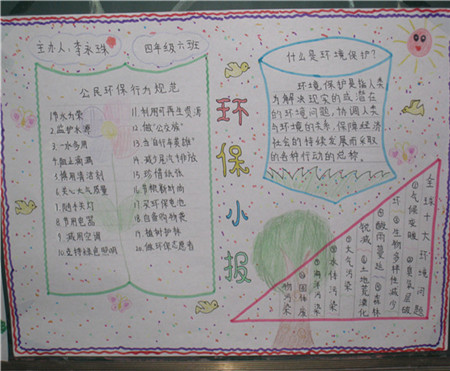 主办人：李永珠
四年级六班
公民环保行为规范
2.监护水源
3.一水多用
4.阻止滴漏
5.慎用清洁剂
6.关心大气质量
7.随手关灯
8.节用电器
9.减用空调
10.支持绿色照明
11.利用可再生资源
12.做“公交族”
13.当“自行车英雄”
14.减少尾气排放
15.珍惜纸张
17.买环保电池
18.自备购物袋
19.植树护林
20.做环保志愿者
环保小报
什么是环境保护？
环境保护是指人类
为解决现实的或潜在
的环境问题，协调人类
与环境的关系，保障经济
社会的持续发展而采取
的各种行动的总称。
全球十大环境问题
①气候变暖
②臭氧层破
环
③生物多样性减少
④酸雨蔓延
⑤森林
锐减
⑥土地荒漠化
⑦大气污染
⑧水体污染
⑨海洋污染
⑩固体废
物污染